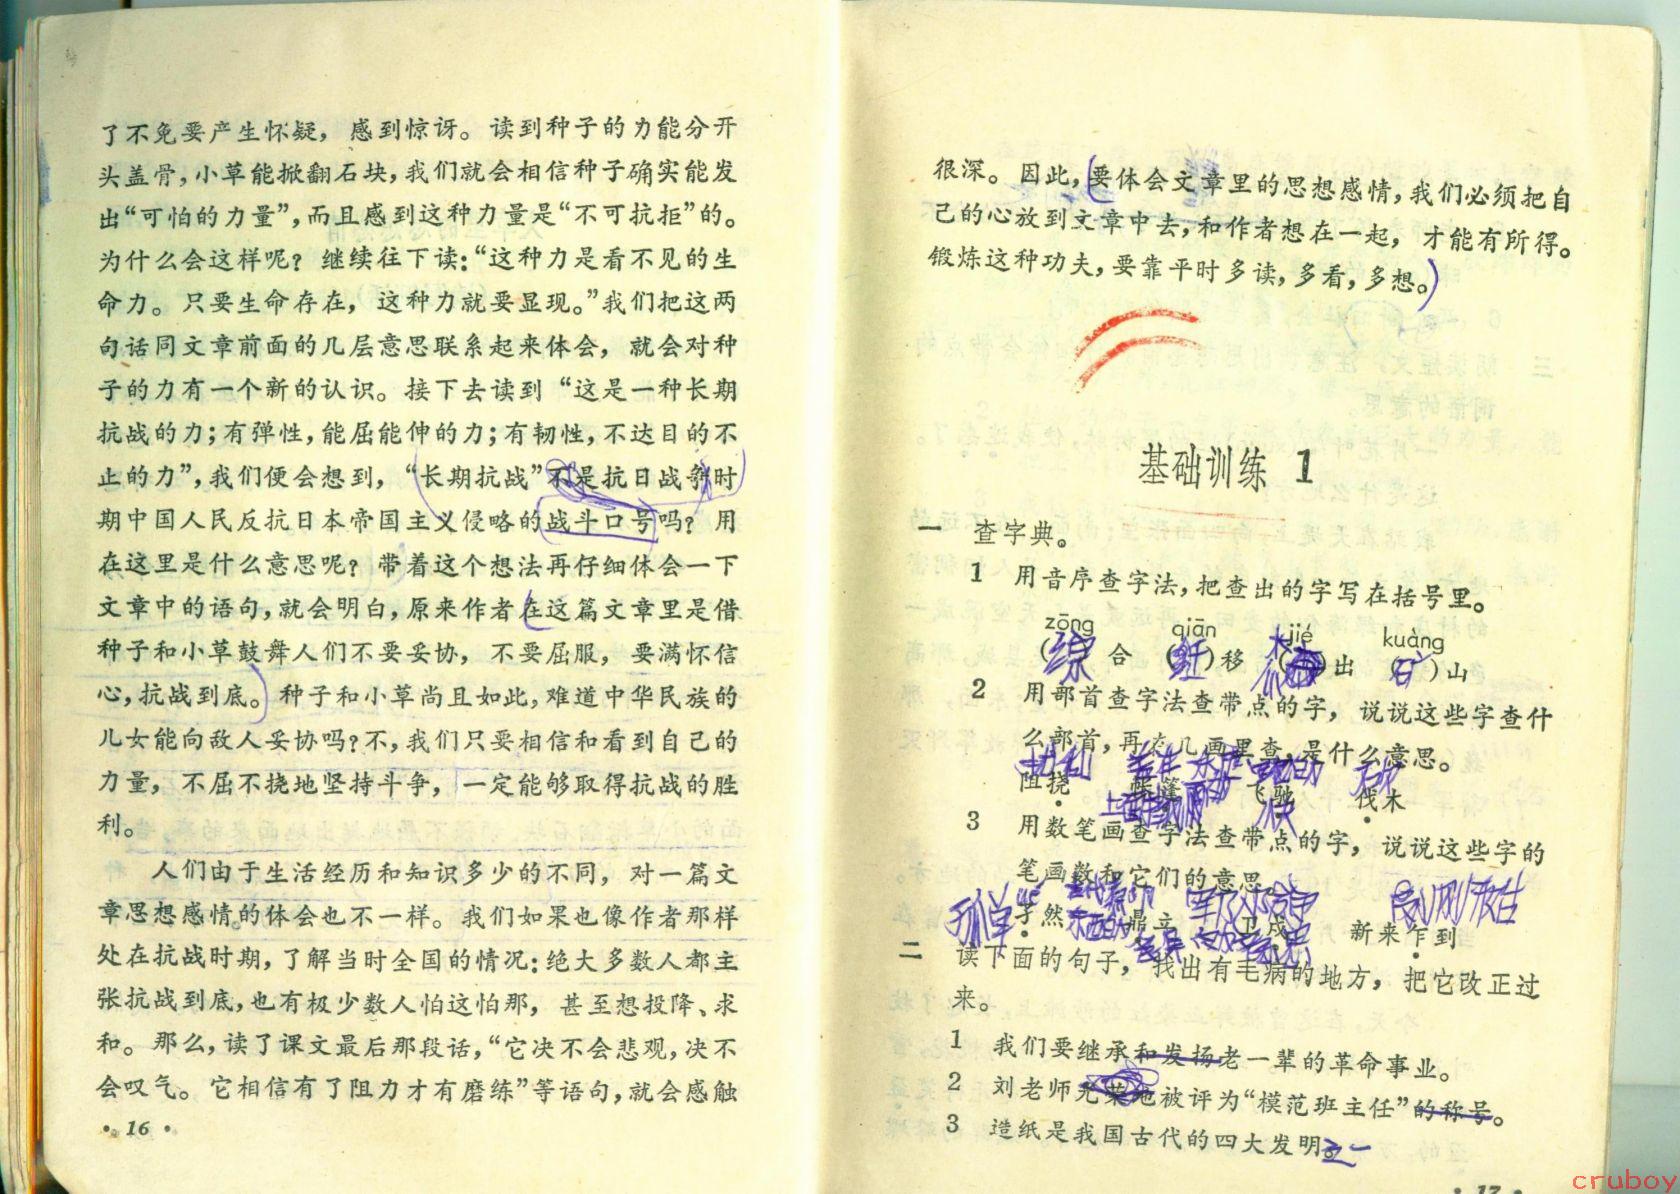 了不免要产生怀疑，感到惊讶。读到种子的力能分开
头盖骨，小草能掀翻石块，我们就会相信种子确实能发
出“可怕的力量”，而且感到这种力量是“不可抗拒”的。
为什么会这样呢？继续往下读：“这种力是看不见的生
命力。只要生命存在，这种力就要显现。”我们把这两
句话同文章前面的几层意思联系起来体会，就会对种
子的力有一个新的认识。接下去读到“这是一种长期
抗战的力；有弹性，能屈能伸的力；有韧性，不达目的不
止的力”，我们便会想到，“长期抗战”不是抗日战争时
期中国人民反抗日本帝国主义侵略的战斗口号吗？用
在这里是什么意思呢？带着这个想法再仔细体会一下
文章中的语句，就会明白，原来作者在这篇文章里是借
种子和小草鼓舞人们不要妥协，不要屈服，要满怀信
心，抗战到底。种子和小草尚且如此，难道中华民族的
儿女能向敌人妥协吗？不，我们只要相信和看到自己的
力量，不屈不挠地坚持斗争，一定能够取得抗战的胜
利。
人们由于生活经历和知识多少的不同，对一篇文
章思想感情的体会也不一样。我们如果也像作者那样
处在抗战时期，了解当时全国的情况：绝大多数人都主
张抗战到底，也有极少数人怕这怕那，甚至想投降、求
和。那么，读了课文最后那段话，“它决不会悲观，决不
会叹气。它相信有了阻力才有磨练”等语句，就会感触
·16·
很深。因此，要体会文章里的思想感情，我们必须把自
己的心放到文章中去，和作者想在一起，才能有所得。
锻炼这种功夫，要靠平时多读，多看，多想。
基础训练 1
一 查字典。
1 用音序查字法，把查出的字写在括号里。
zōng qiān jié kuàng
(综)合 (迁)移 ( )出 (矿)山
2 用部首查字法查带点的字，说说这些字查什
么部首，再查几画里查，是什么意思。
阻挠 帐篷 飞驰 伐木
3 用数笔画查字法查带点的字，说说这些字的
笔画数和它们的意思。
孤单
孑然 鼎立 卫戍 新来乍到
二 读下面的句子，找出有毛病的地方，把它改正过
来。
1 我们要继承和发扬老一辈的革命事业。
2 刘老师光荣地被评为“模范班主任”的称号。
3 造纸是我国古代的四大发明之一。
·17·
cruboy